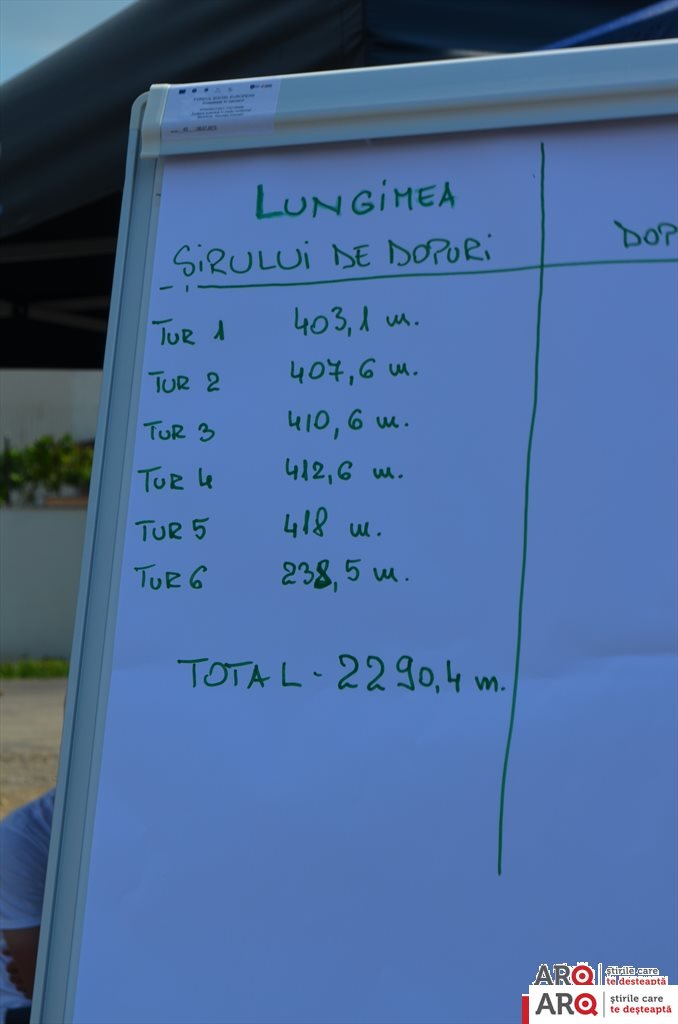 FONDUL SOCIAL EUROPEAN
LUNGIMEA
ȘIRULUI DE DOPURI
DOP
TUR 1 403,1 m.
TUR 2 407,6 m.
TUR 3 410,6 m.
TUR 4 412,6 m.
TUR 5 418 m.
TUR 6 238,5 m.
TOTAL - 2290,4 m.
ARQ știrile care
te deșteaptă
ARQ știrile care
te deșteaptă